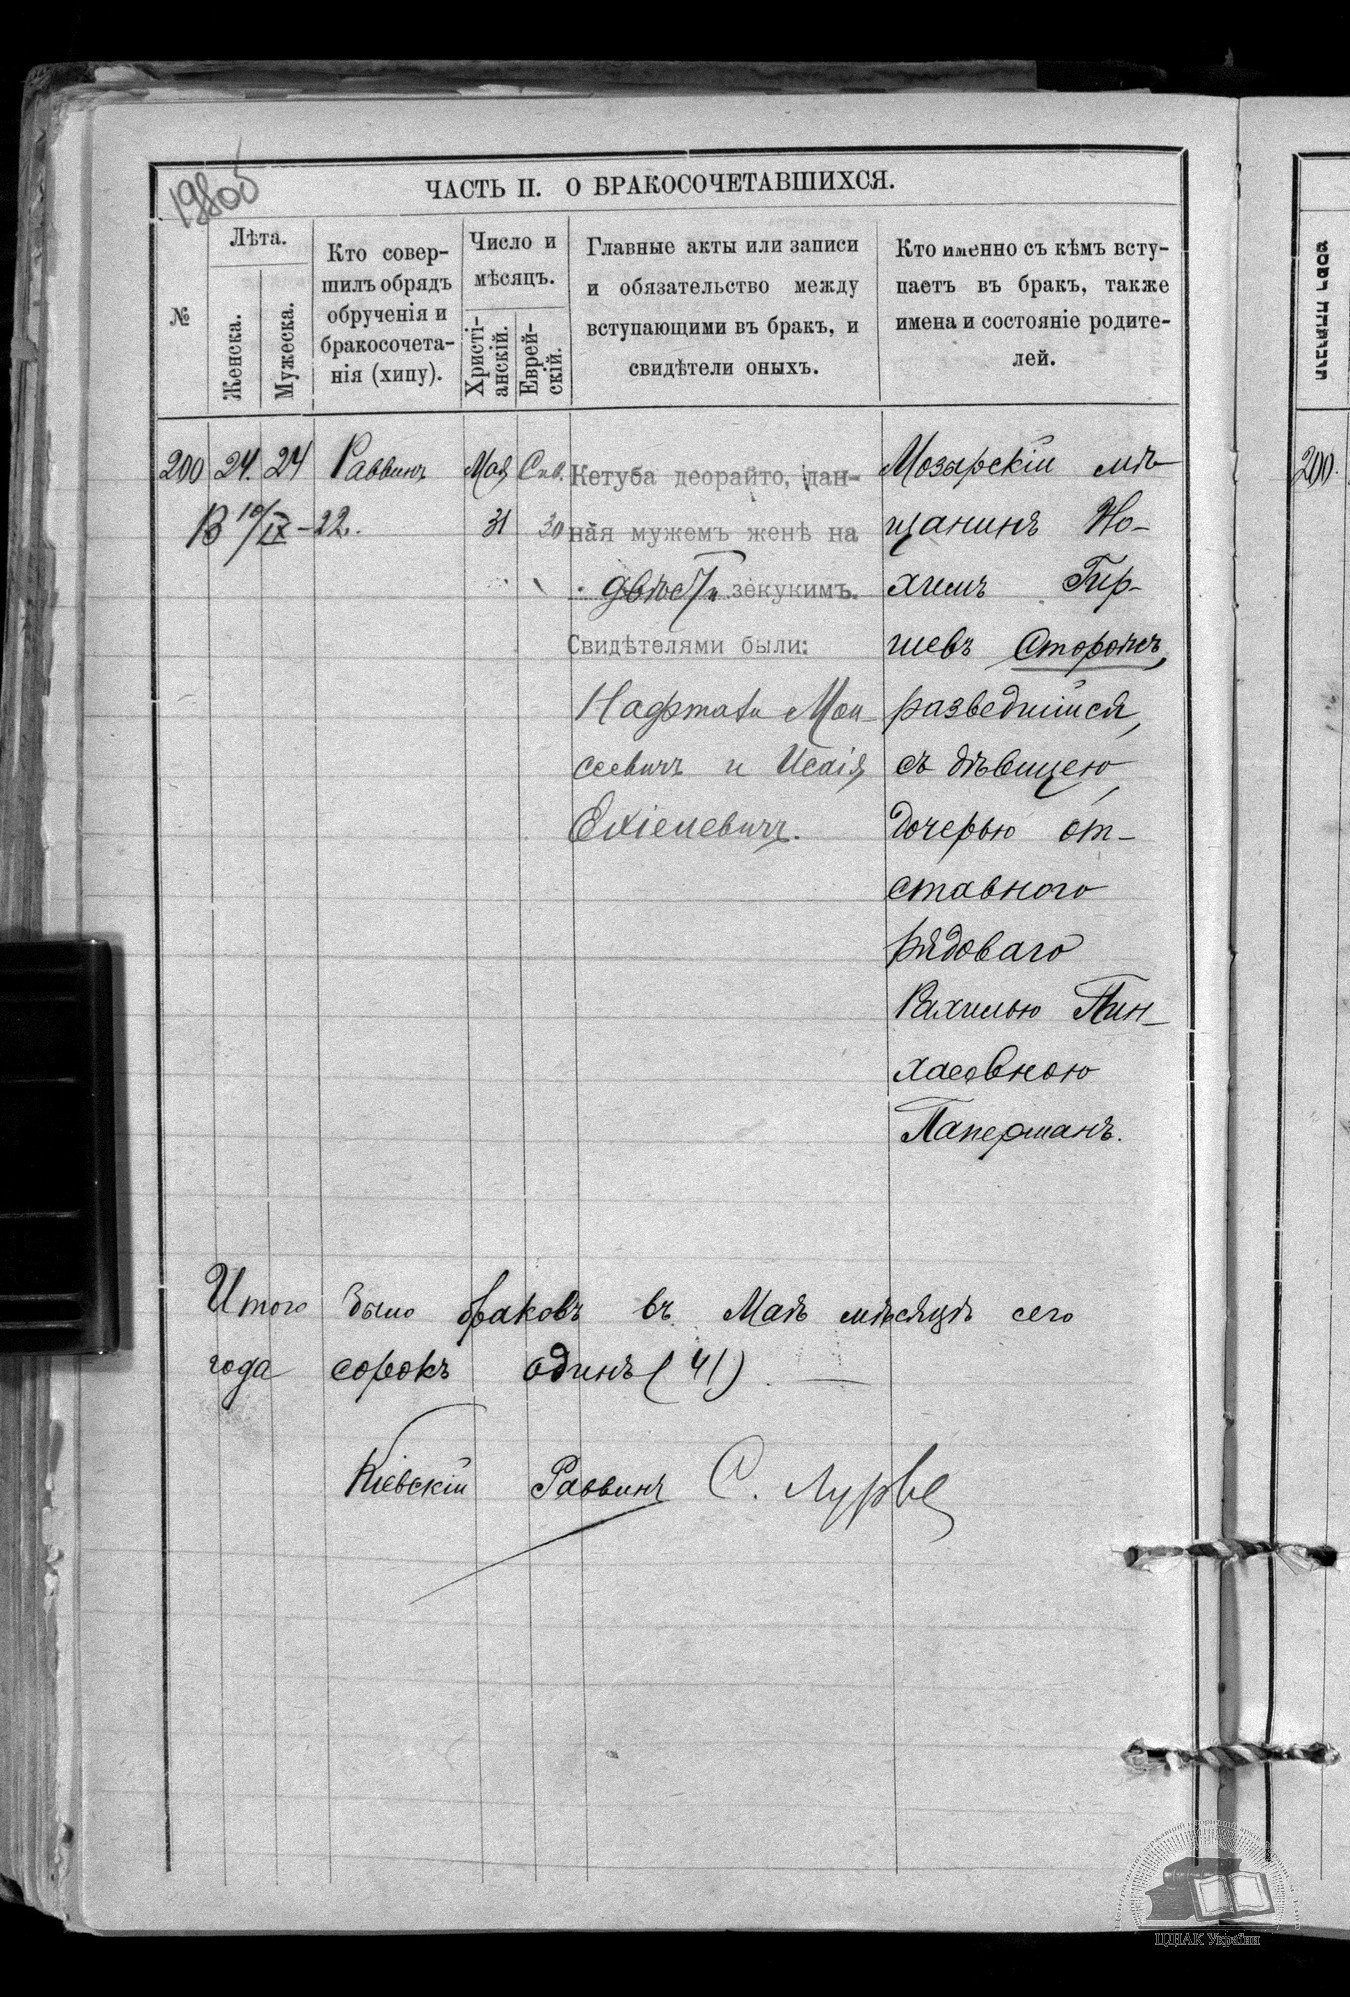 198об
ЧАСТЬ II. О БРАКОСОЧЕТАВШИХСЯ.
№
Лѣта.
Женска.
Мужеска.
Кто совер-
шилъ обрядъ
обрученія и
бракосочета-
нія (хипу).
Число и
мѣсяцъ.
Христі-
анскій.
Еврей-
скій.
Главные акты или записи
и обязательство между
вступающими въ бракъ, и
свидѣтели оныхъ.
Кто именно съ кѣмъ всту-
паетъ въ бракъ, также
имена и состояніе родите-
лей.
200 24. 24 Раввинъ Мая Сив.
31 30
В 10/IX-22.
Кетуба деорайто, дан-
ная мужемъ женѣ на
двѣсти зекукимъ.
Свидѣтелями были:
Нафтали Мои-
сеевичъ и Исаія
Ехіелевичъ.
Мозырскій мѣ-
щанинъ Но-
химъ Гир-
шевъ
разведшійся,
съ дѣвицею,
дочерью от-
ставного
рядоваго
Рахилью Пин-
хасовною
Паперманъ.
Итого было браковъ въ Маѣ мѣсяцѣ сего
года сорокъ одинъ (41).
Кіевскій Раввинъ С. Лурье
200.
ЦДІАК України